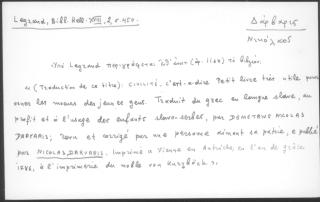 Legrand, Bibl. Hell. XVIII, 2, σ. 450.
Δάρβαρις
Νικόλαος
Ὑπὸ Legrand περιγράφεται
τὸ βιβλίον.
« (Traduction de ce titre): CIVILITÉ, c'est-à-dire Petit livre très utile pour
les mœurs des jeunes gens. Traduit du grec en langue slave, au
profit et à l'usage des enfants slavo-serbes, par DEMETRIUS NICOLAS
DARVARIS; revu et corrigé par une personne aimant sa patrie, e publié
par NICOLAS DARVARIS. Imprimé à Vienne en Autriche, en l'an de grâce
1786, à l'imprimerie du noble von Kurzböck ».